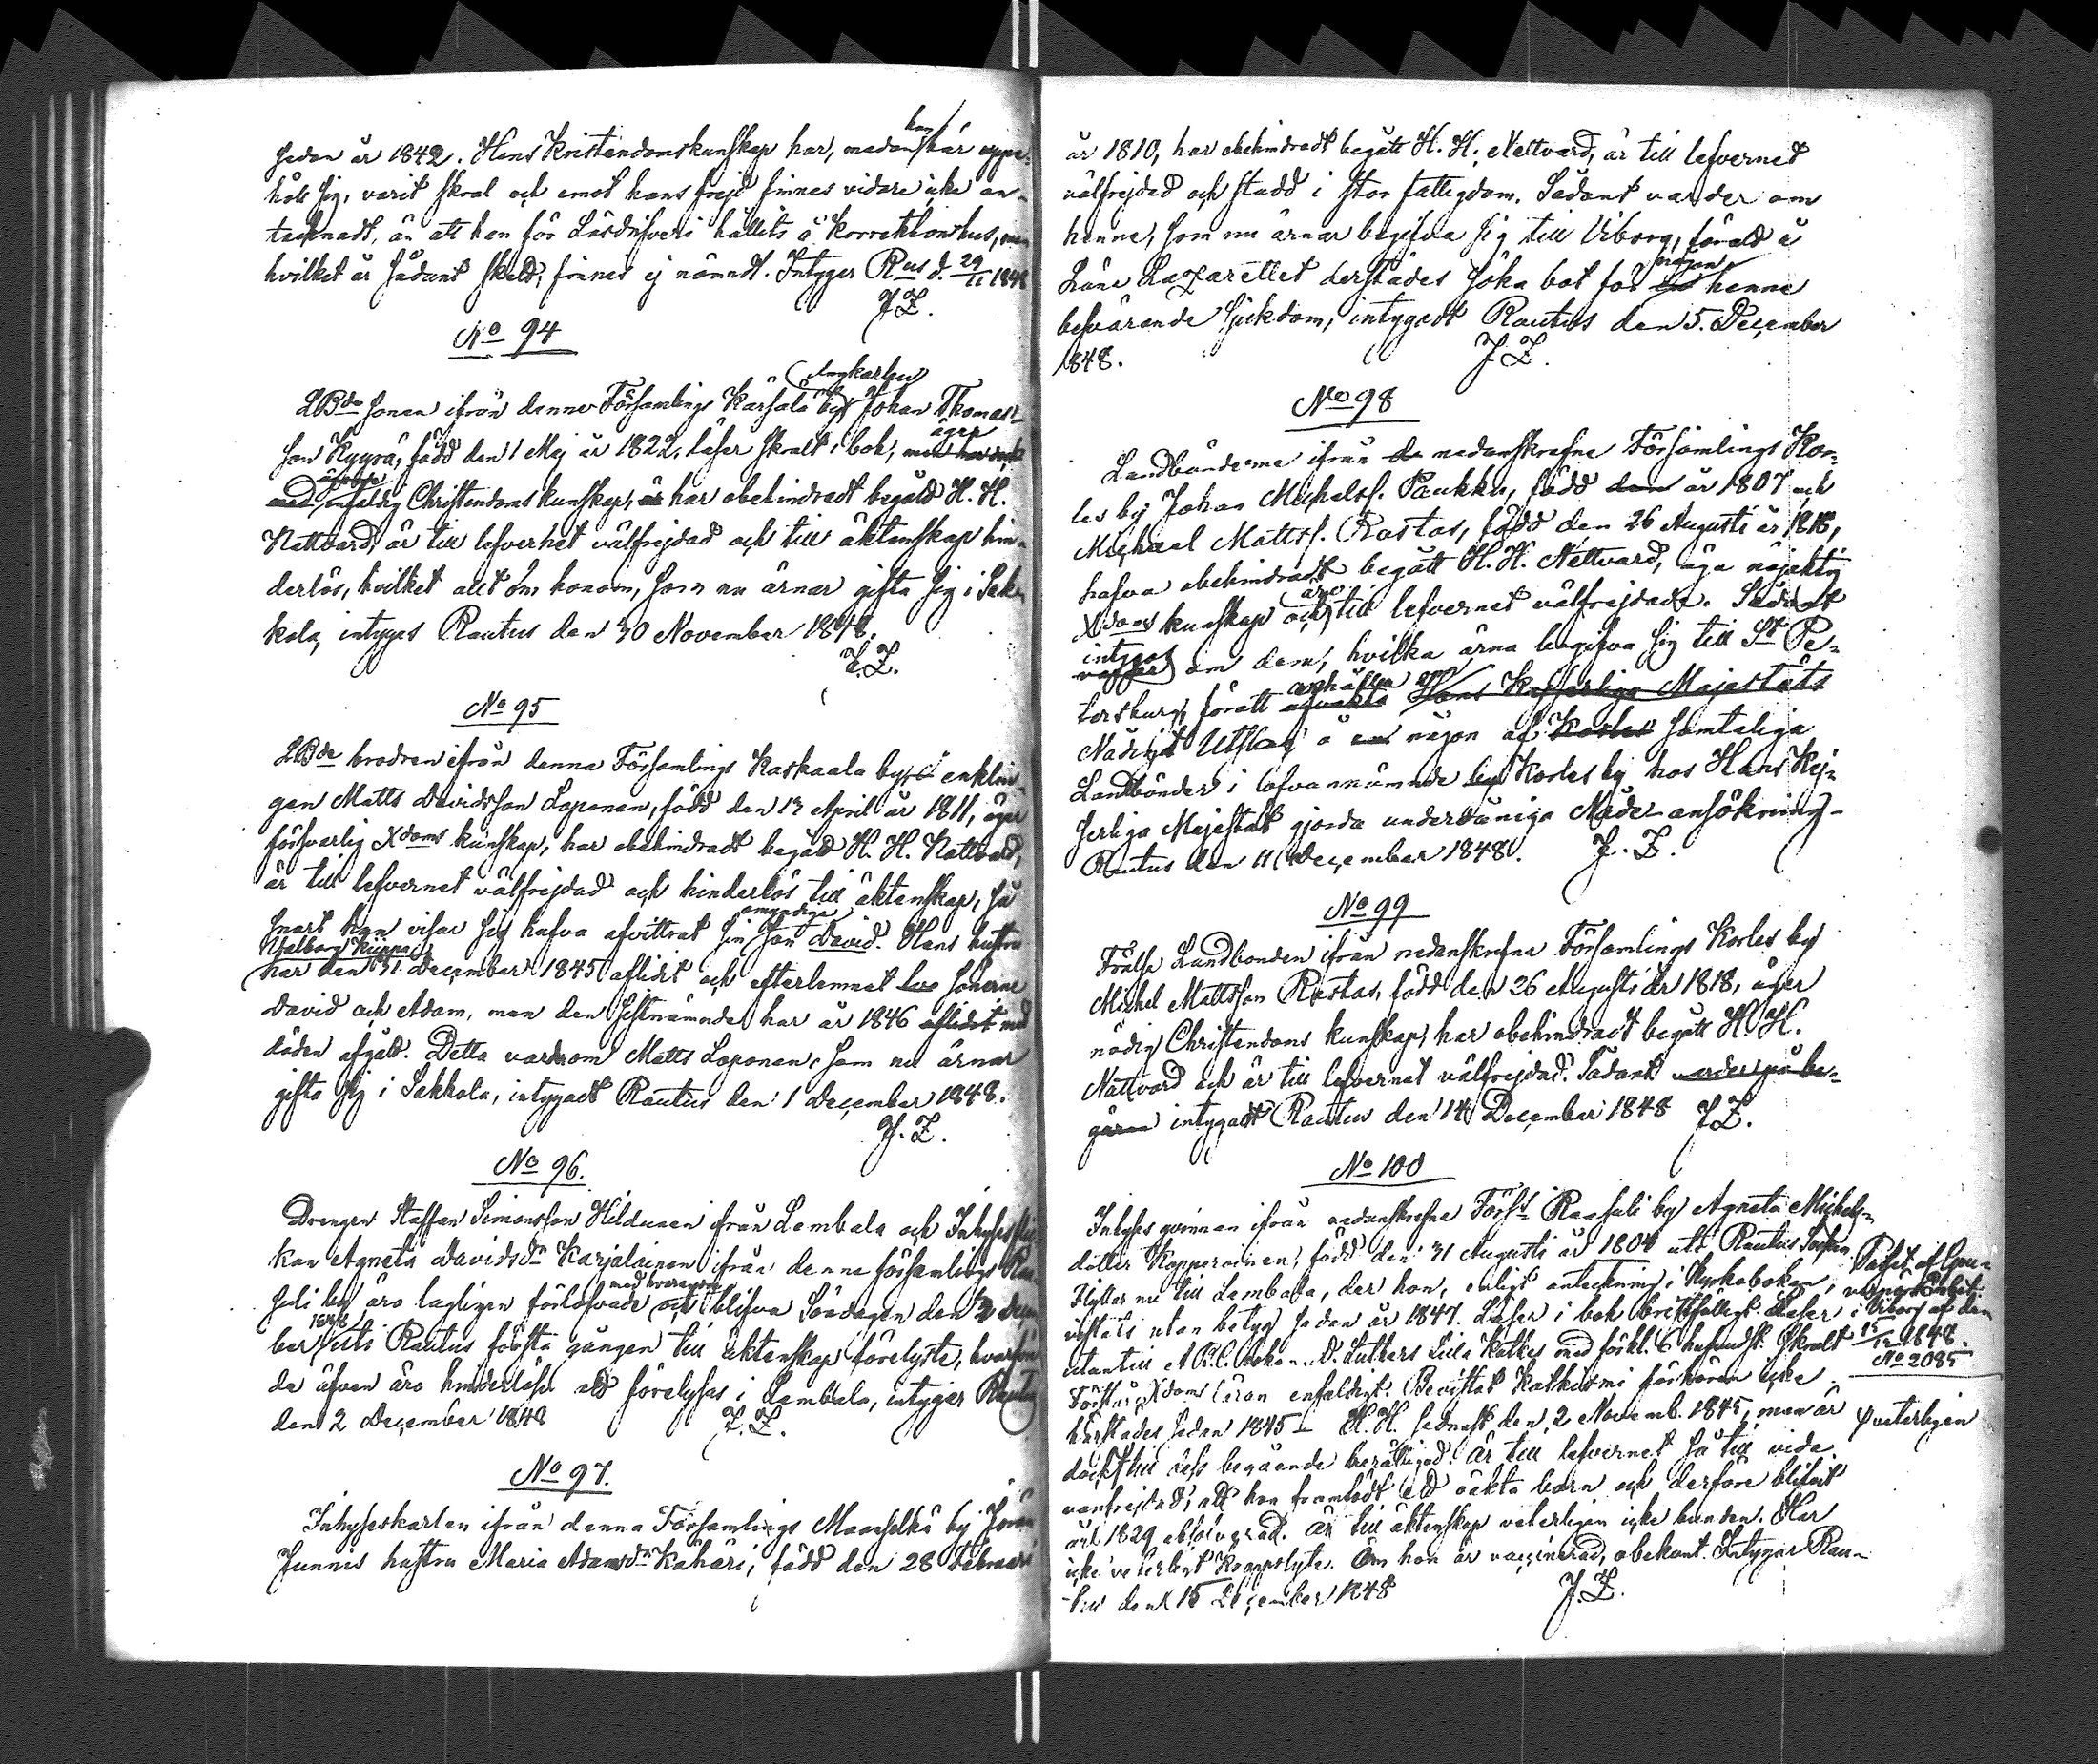 han
sedan år 1842. Hans Kristendomskunskap har, medan här uppe-
hållt sig, varit skral och emot hans frejd finnes vidare icke an-
tecknadt, än att han för Lösdrifveri hållits å Korrektionshus, men
hvilket år sådant skedt, finnes ej nämndt. Intygar R:us d. 29/11 1848
J Z.
No 94
Ungkarlen
LBde sonen ifrån denne Församlings Kärsälä by Johan Thomas-
äger
son Kyyrä, född den 1 Maj år 1822, läser skralt i bok, men har ock
med enfaldig Christendoms kunskap, är har obehindradt begått H. H.
Nattvard, är till lefvernet välfrejdad och till äktenskap hin-
derlös, hvilket allt om honom, som nu ärnar gifta sig i Sak-
kola, intygas Rautus den 30 November 1848.
J. Z.
No 95
LBde brodren ifrån denna Församlings Kaskaala by, enklin-
gen Matts Davidsson Loponen, född den 13 April år 1811, äger
försvarlig Xdoms kunskap, har obehindradt begått H. H. Nattvard,
är till lefvernet välfrejdad och hinderlös till äktenskap, så
omyndige
snart han visar sig hafva afvittrat sin son David. Hans hustru
Valborg Kiippa
har den 31 December 1845 aflidit och efterlemnat två sönerne
David och Adam, men den sistnämnde har år 1846 aflidit med
döden afgått. Detta varder om Matts Loponen, som nu ärnar
gifta sig i Sakkola, intygadt Rautus den 1 December 1848.
J. Z.
No 96.
Drengen Staffan Simonsson Hildunen ifrån Lembala och Inhyses
kan Agneta Davidsdr Karjalainen ifrån denne församlings Raa-
med hvarandra
suli by äro lagligen förlofvade och blifva Söndagen den 3 Decem
1848
ber uti Rautus första gången till äktenskap förelyste, hvarför
de äfven äro hinderlöse att förelysas i Lembala, intygar Rautus
den 2 December 1848
J. Z.
No 97.
Inhyseskarlen ifrån denna Församlings Maaselkä by Jöran
Junnis hustru Maria Adamsdr Kähäri, född den 28 Februari
år 1810, har obehindradt begått H. H. Nattvard, är till lefvernet
välfrejdad och stadd i stor fattigdom. Sådant varder om
henne, som nu ärnar begifva sig till Viborg, föratt å
någon
Läns Lazarettet derstädes söka bot för en henne
besvärande sjukdom, intygadt Rautus den 5. December
1848. J Z.
No 98
Landbönderne ifrån de nedanskrefne Församlings Kor-
les by Johan Michelss. Paukku, född den år 1807 och
Michael Mattss. Rastas, född den 26 Augusti år 1818,
hafva obehindradt begått H. H. Nattvard, äga nöjaktig
äro
Xdoms kunskap och till lefvernet välfrejdade. Sådant
intygas
varder om dem, hvilka ärna begifva sig till St Pe-
erhålla
tersburg, föratt afvakta Hans Kejserliga Majestäts
Nådigt Utslag å en någon af Korles samteliga
Landbönder i ofvannämnde by Korles by hos Hans Kej-
serliga Majestät gjorda underdåniga Nåde-ansökning-
Rautus den 11 December 1848. J. Z.
No 99
Frälse Landbonden ifrån nedanskrefne Församlings Korles by
Michel Mattsson Rastas, född den 26 Augusti år 1818, äger
nödig Christendoms kunskap, har obehindradt begått H. H.
Nattvard och är till lefvernet välfrejdad. Sådant varder på be-
gäran intygadt Rautus den 14 December 1848 J Z.
No 100
Inhyses qvinnan ifrån nedanskrefne Förs:s Raasuli by Agneta Michels-
dotter Kopperoinen, född den 31 Augusti år 1804 uti Rautus Socken.
Flyttar nu till Lembala, der hon, enligt anteckning i Kyrkoboken,
vistats utan betyg sedan år 1847. Läser i bok bristfälligt. Läser
utantill A.B.C. boken, D. Luthers Lilla Katkes med förkl. 6 hufvudst. skralt
Förstår Xdoms läran enfaldigt. Bevistat Katkismi förhören icke
härstädes sedan 1845 H. H. sednast den 2 Novemb. 1845, men är
dock till dess begående berättigad. Är till lefvernet så till vida
vanfrejdad, att hon framfödt ett oäkta barn och derföre blifvit
år 1829 absolverad. Är till äktenskap veterligen icke bunden. Har
icke veterligt koppslyte. Om hon är vaccinerad, obekant. Intygar Rau-
tus den 15 December 1848 J. Z.
Passet af Gou-
verneurs Embetet
i Viborg af den
15/12 1848.
No 2085
veterligen